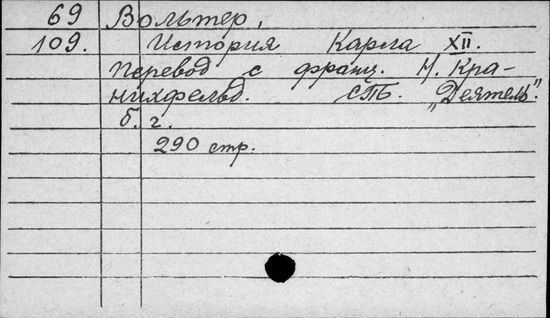 69 Вольтер,
109. История Карла XII.
Перевод с франц. М. Кра-
нихфельд. СПБ. „Деятель".
б. г.
290 стр.